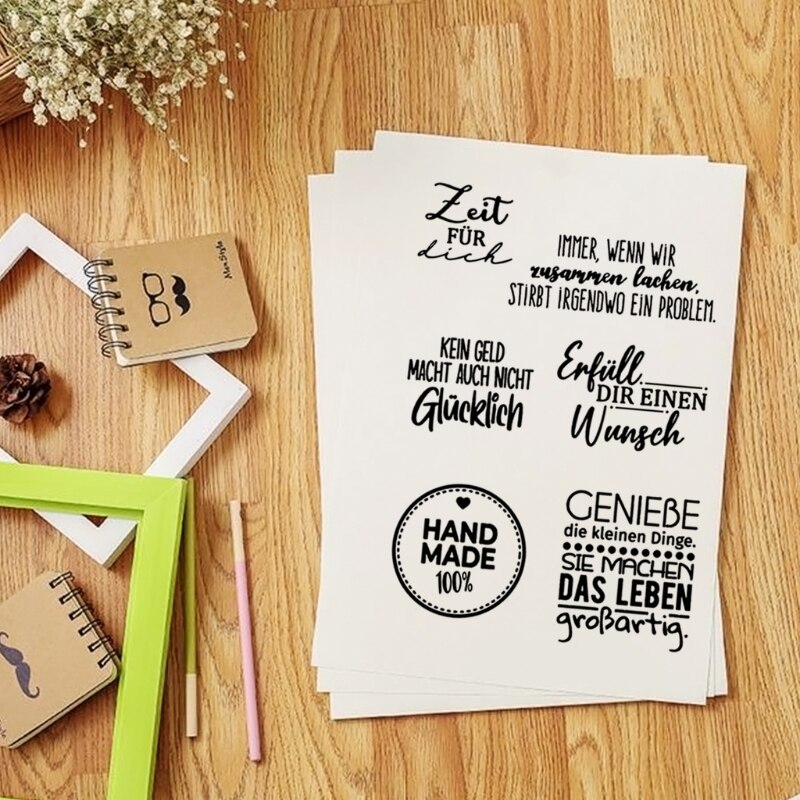 Zeit
FÜR
dich
IMMER, WENN WIR
zusammen lachen,
STIRBT IRGENDWO EIN PROBLEM.
KEIN GELD
MACHT AUCH NICHT
Glücklich
Erfüll
DIR EINEN
Wunsch
HAND
MADE
100%
GENIEßE
die kleinen Dinge.
SIE MACHEN
DAS LEBEN
großartig.
Men Style